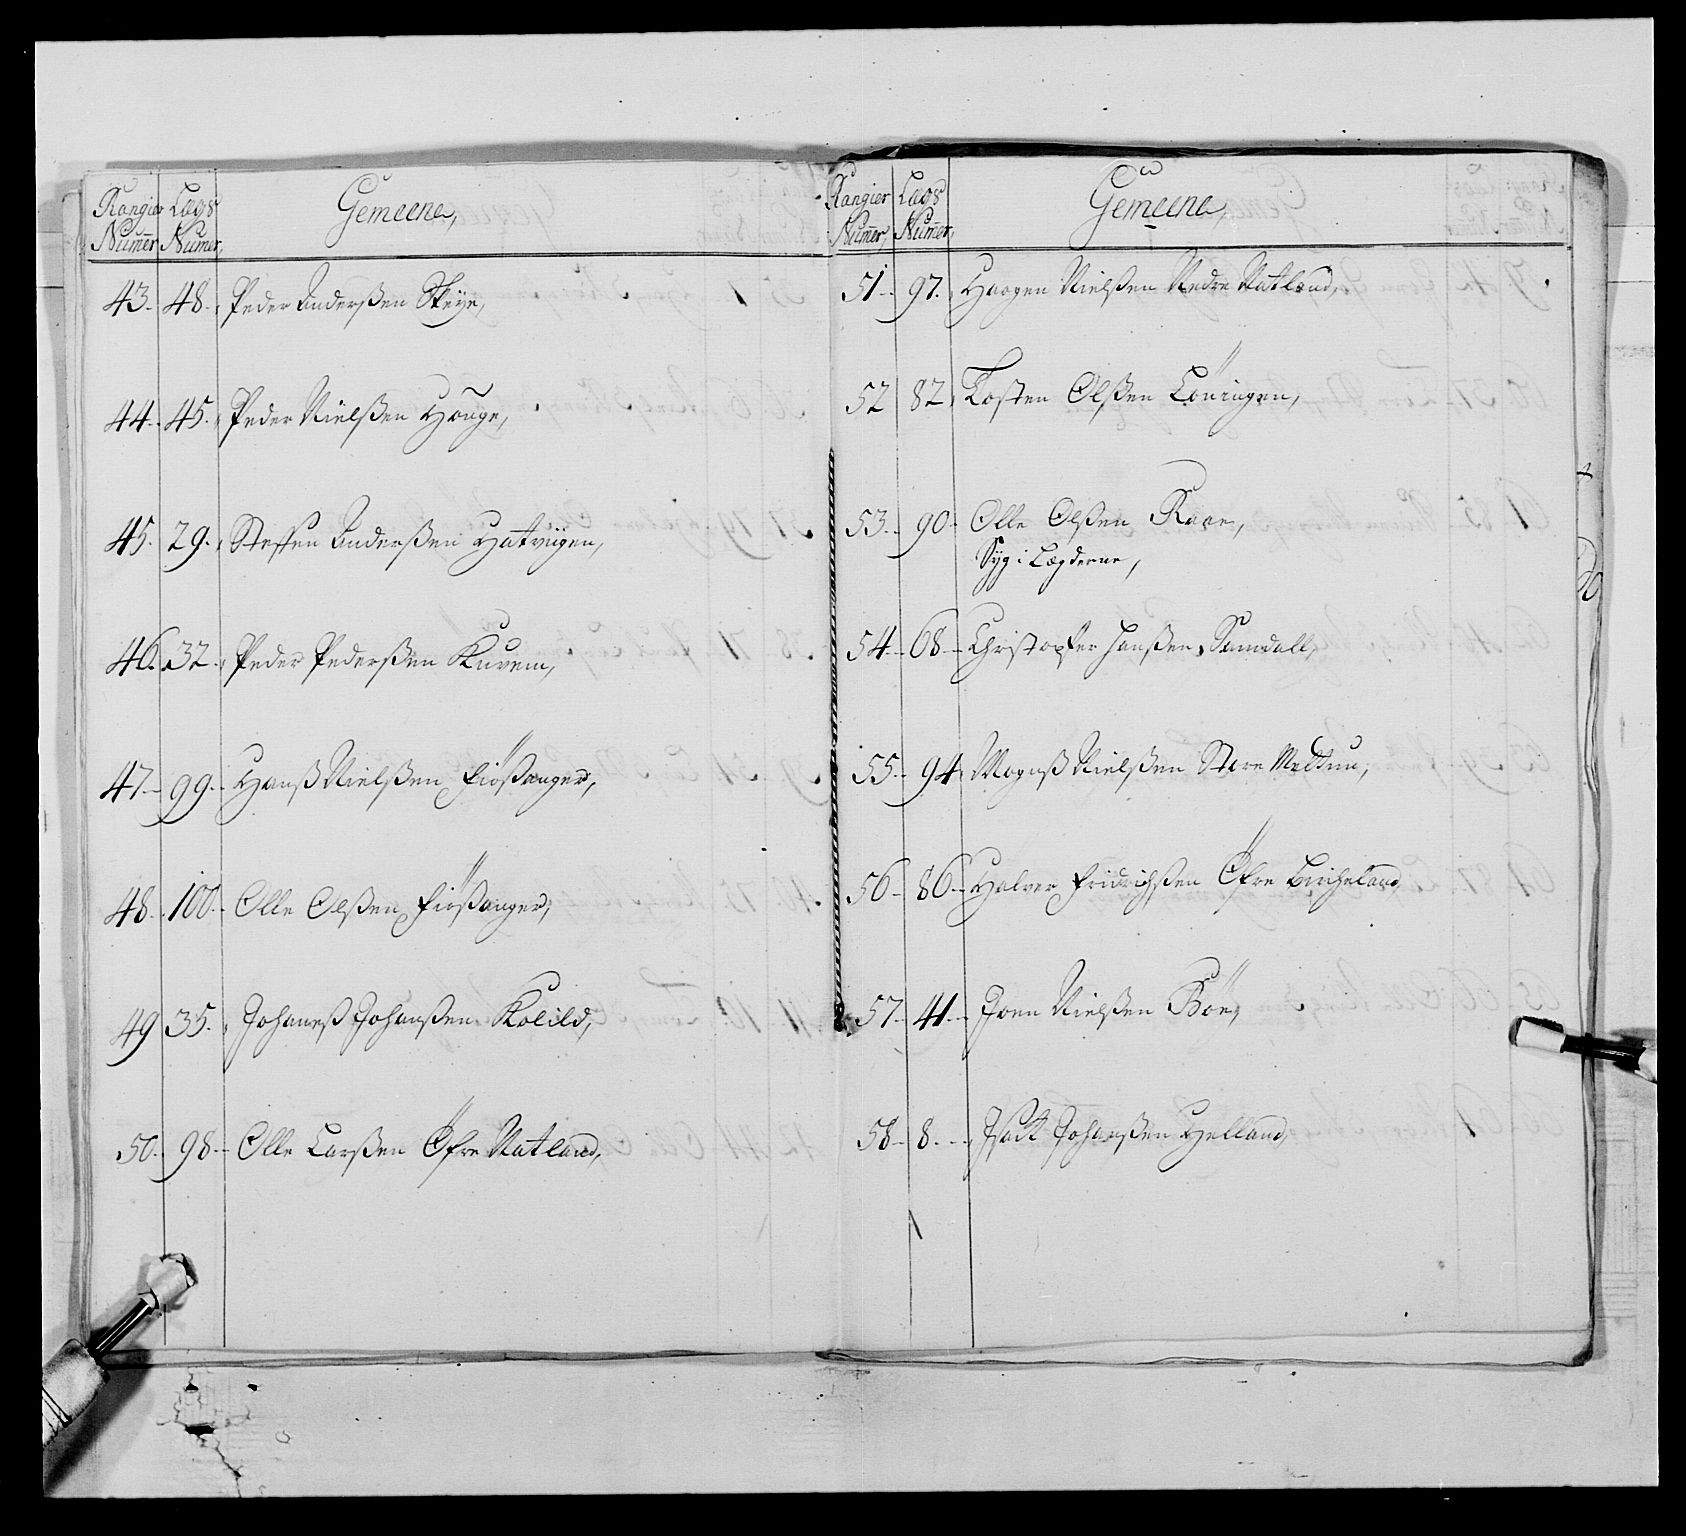 Rangier Numer Lægs Numer, Gemeene,
43. 48. Peder Anderßen Skeye,
44. 45. Peder Nielßen Houge,
45. 29. Steffen Anderßen Hatviigen,
46. 32. Peder Pederßen Kuvem,
47. 99. Hanß Nielßen Fiößanger,
48. 100. Olle Olßen Fiößanger,
49 35. Johaneß Johanßen Kolild,
50. 98. Olle Larßen Öfre Natland,
Rangier Numer, Lægs Numer, Gemeene,
51. 97. Haagen Nielßen Nedre Natland,
52 82. Tosten Olßen Löningen,
53. 90. Olle Olßen Raae,
Syg i Lægderne,
54. 68. Christopfer Hanßen Samdall,
55. 94 Mognß Nielßen Store Mildtun,
56. 86. Halvor Fridrichßen Öfre Bircheland,
57. 41. Joen Nielßen Böe,
58. 8. Isack Johanßen Helland,